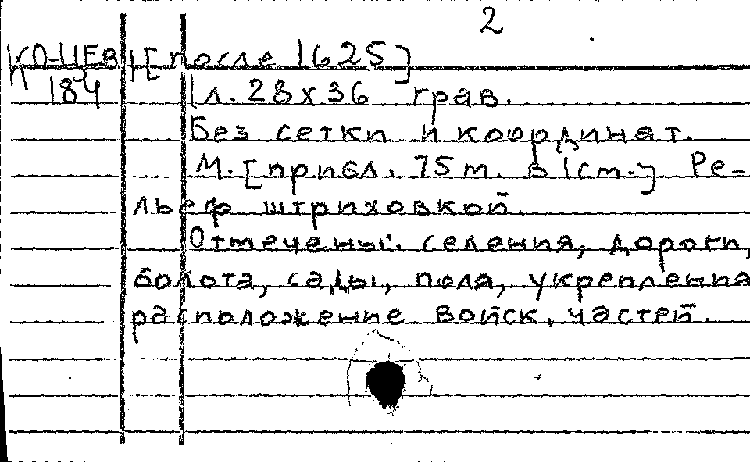 2
КО-ЦЕВ [после 1625]
184 1л. 28х36 грав.
Без сетки и координат.
М. [прибл. 75 m. в 1 cm.] Ре-
льеф штриховкой.
Отмечены: селения, дороги,
болота, сады, поля, укрепления
расположение войск. частей.